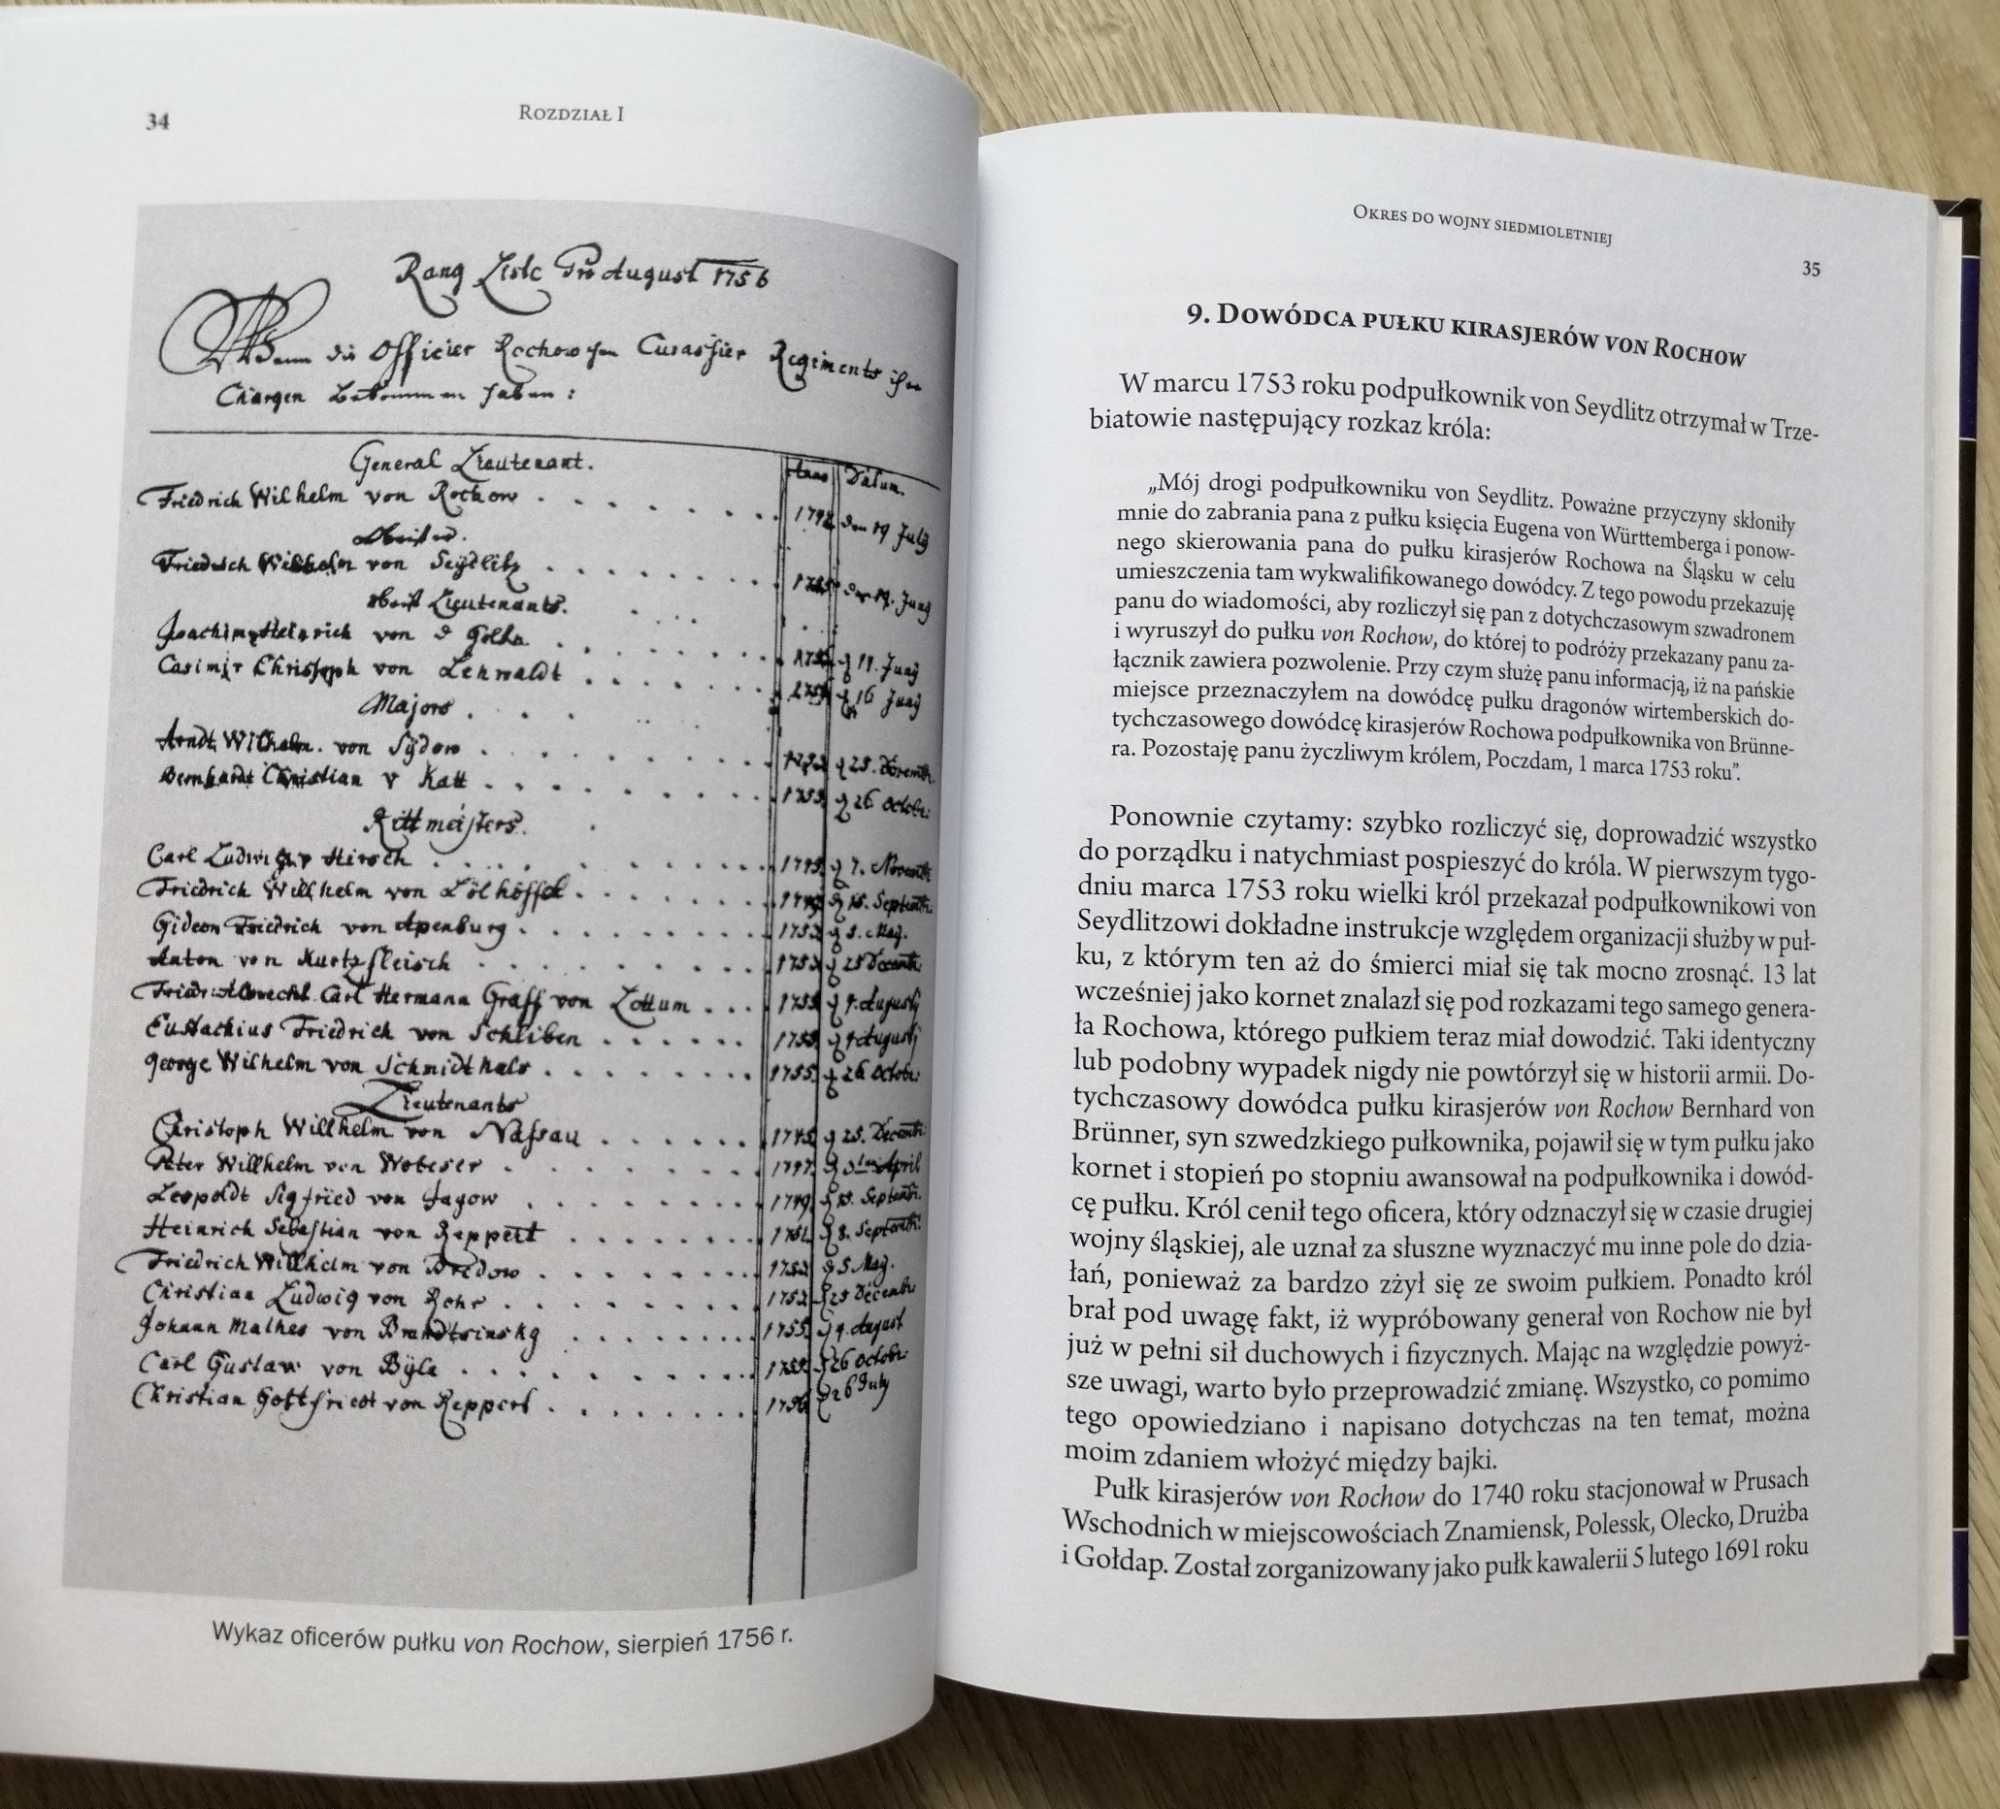 34
Rozdział I
Rang Liste Pro August 1756
Wann die Officier Rochowschen Curassier Regiments ihre
Chargen bekommen haben:
General Lieutenant.
Datum.
Friedrich Wilhelm von Rochow
den 19 July
Obrister.
Friedrich Wilhelm von Seÿdlitz
Obrist Lieutenants.
Joachim Heinrich von d Goltz
11. Junÿ
Casimir Christoph von Lehwaldt
16 Junÿ
Majors
Arndt Wilhelm von Sÿdow
Bernhardt Christian v Katt
1753 26 Octobr:
Rittmeisters.
Carl Ludwig v Hirsch
Friedrich Willhelm von Lölhöffel
Gideon Friedrich von Apenburg
1752 5. Maÿ.
Anton von Kurtzfleisch
Friedr: Albrecht Carl Hermann Graff von Lottum
1753 9. Augustÿ
Eustachius Friedrich von Schlieben
1753 9 Augustÿ
George Wilhelm von Schmidthals
1755 26 Octobr:
Lieutenants
Christoph Willhelm von Nassau
1745 25. Decembr:
Peter Willhelm von Wobeser
1747 April
Leopoldt Sigfried von Jagow
1749 Septembr:
Heinrich Sebastian von Reppert
8. Septembr:
Friedrich Willhelm von Bredow
1752 5 Maÿ.
Christian Ludwig von Rohr
1752 25 Decembr
Johann Mathes von
1753 9. August
Carl Gustav von Bÿla
26 Octobr:
Christian Gottfriedt von Reppert
1756 26 July
Wykaz oficerów pułku von Rochow, sierpień 1756 r.
Okres do wojny siedmioletniej
35
9. Dowódca pułku kirasjerów von Rochow
W marcu 1753 roku podpułkownik von Seydlitz otrzymał w Trze-
biatowie następujący rozkaz króla:
„Mój drogi podpułkowniku von Seydlitz. Poważne przyczyny skłoniły
mnie do zabrania pana z pułku księcia Eugena von Württemberga i ponow-
nego skierowania pana do pułku kirasjerów Rochowa na Śląsku w celu
umieszczenia tam wykwalifikowanego dowódcy. Z tego powodu przekazuję
panu do wiadomości, aby rozliczył się pan z dotychczasowym szwadronem
i wyruszył do pułku von Rochow, do której to podróży przekazany panu za-
łącznik zawiera pozwolenie. Przy czym służę panu informacją, iż na pańskie
miejsce przeznaczyłem na dowódcę pułku dragonów wirtemberskich do-
tychczasowego dowódcę kirasjerów Rochowa podpułkownika von Brünne-
ra. Pozostaję panu życzliwym królem, Poczdam, 1 marca 1753 roku”.
Ponownie czytamy: szybko rozliczyć się, doprowadzić wszystko
do porządku i natychmiast pospieszyć do króla. W pierwszym tygo-
dniu marca 1753 roku wielki król przekazał podpułkownikowi von
Seydlitzowi dokładne instrukcje względem organizacji służby w puł-
ku, z którym ten aż do śmierci miał się tak mocno zrosnąć. 13 lat
wcześniej jako kornet znalazł się pod rozkazami tego samego genera-
ła Rochowa, którego pułkiem teraz miał dowodzić. Taki identyczny
lub podobny wypadek nigdy nie powtórzył się w historii armii. Do-
tychczasowy dowódca pułku kirasjerów von Rochow Bernhard von
Brünner, syn szwedzkiego pułkownika, pojawił się w tym pułku jako
kornet i stopień po stopniu awansował na podpułkownika i dowód-
cę pułku. Król cenił tego oficera, który odznaczył się w czasie drugiej
wojny śląskiej, ale uznał za słuszne wyznaczyć mu inne pole do dzia-
łań, ponieważ za bardzo zżył się ze swoim pułkiem. Ponadto król
brał pod uwagę fakt, iż wypróbowany generał von Rochow nie był
już w pełni sił duchowych i fizycznych. Mając na względzie powyż-
sze uwagi, warto było przeprowadzić zmianę. Wszystko, co pomimo
tego opowiedziano i napisano dotychczas na ten temat, można
moim zdaniem włożyć między bajki.
Pułk kirasjerów von Rochow do 1740 roku stacjonował w Prusach
Wschodnich w miejscowościach Znamiensk, Polessk, Olecko, Drużba
i Gołdap. Został zorganizowany jako pułk kawalerii 5 lutego 1691 roku